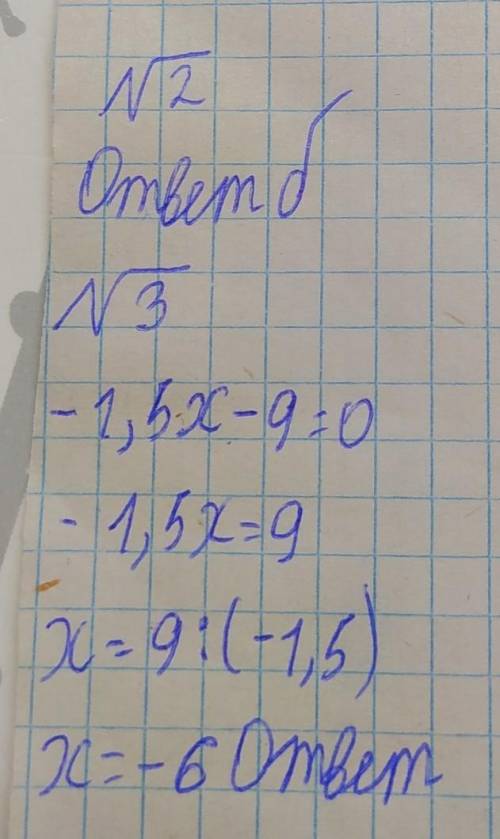 √2
Ответ б
√3
-1,5x-9=0
-1,5x=9
x=9:(-1,5)
x=-6 Ответ